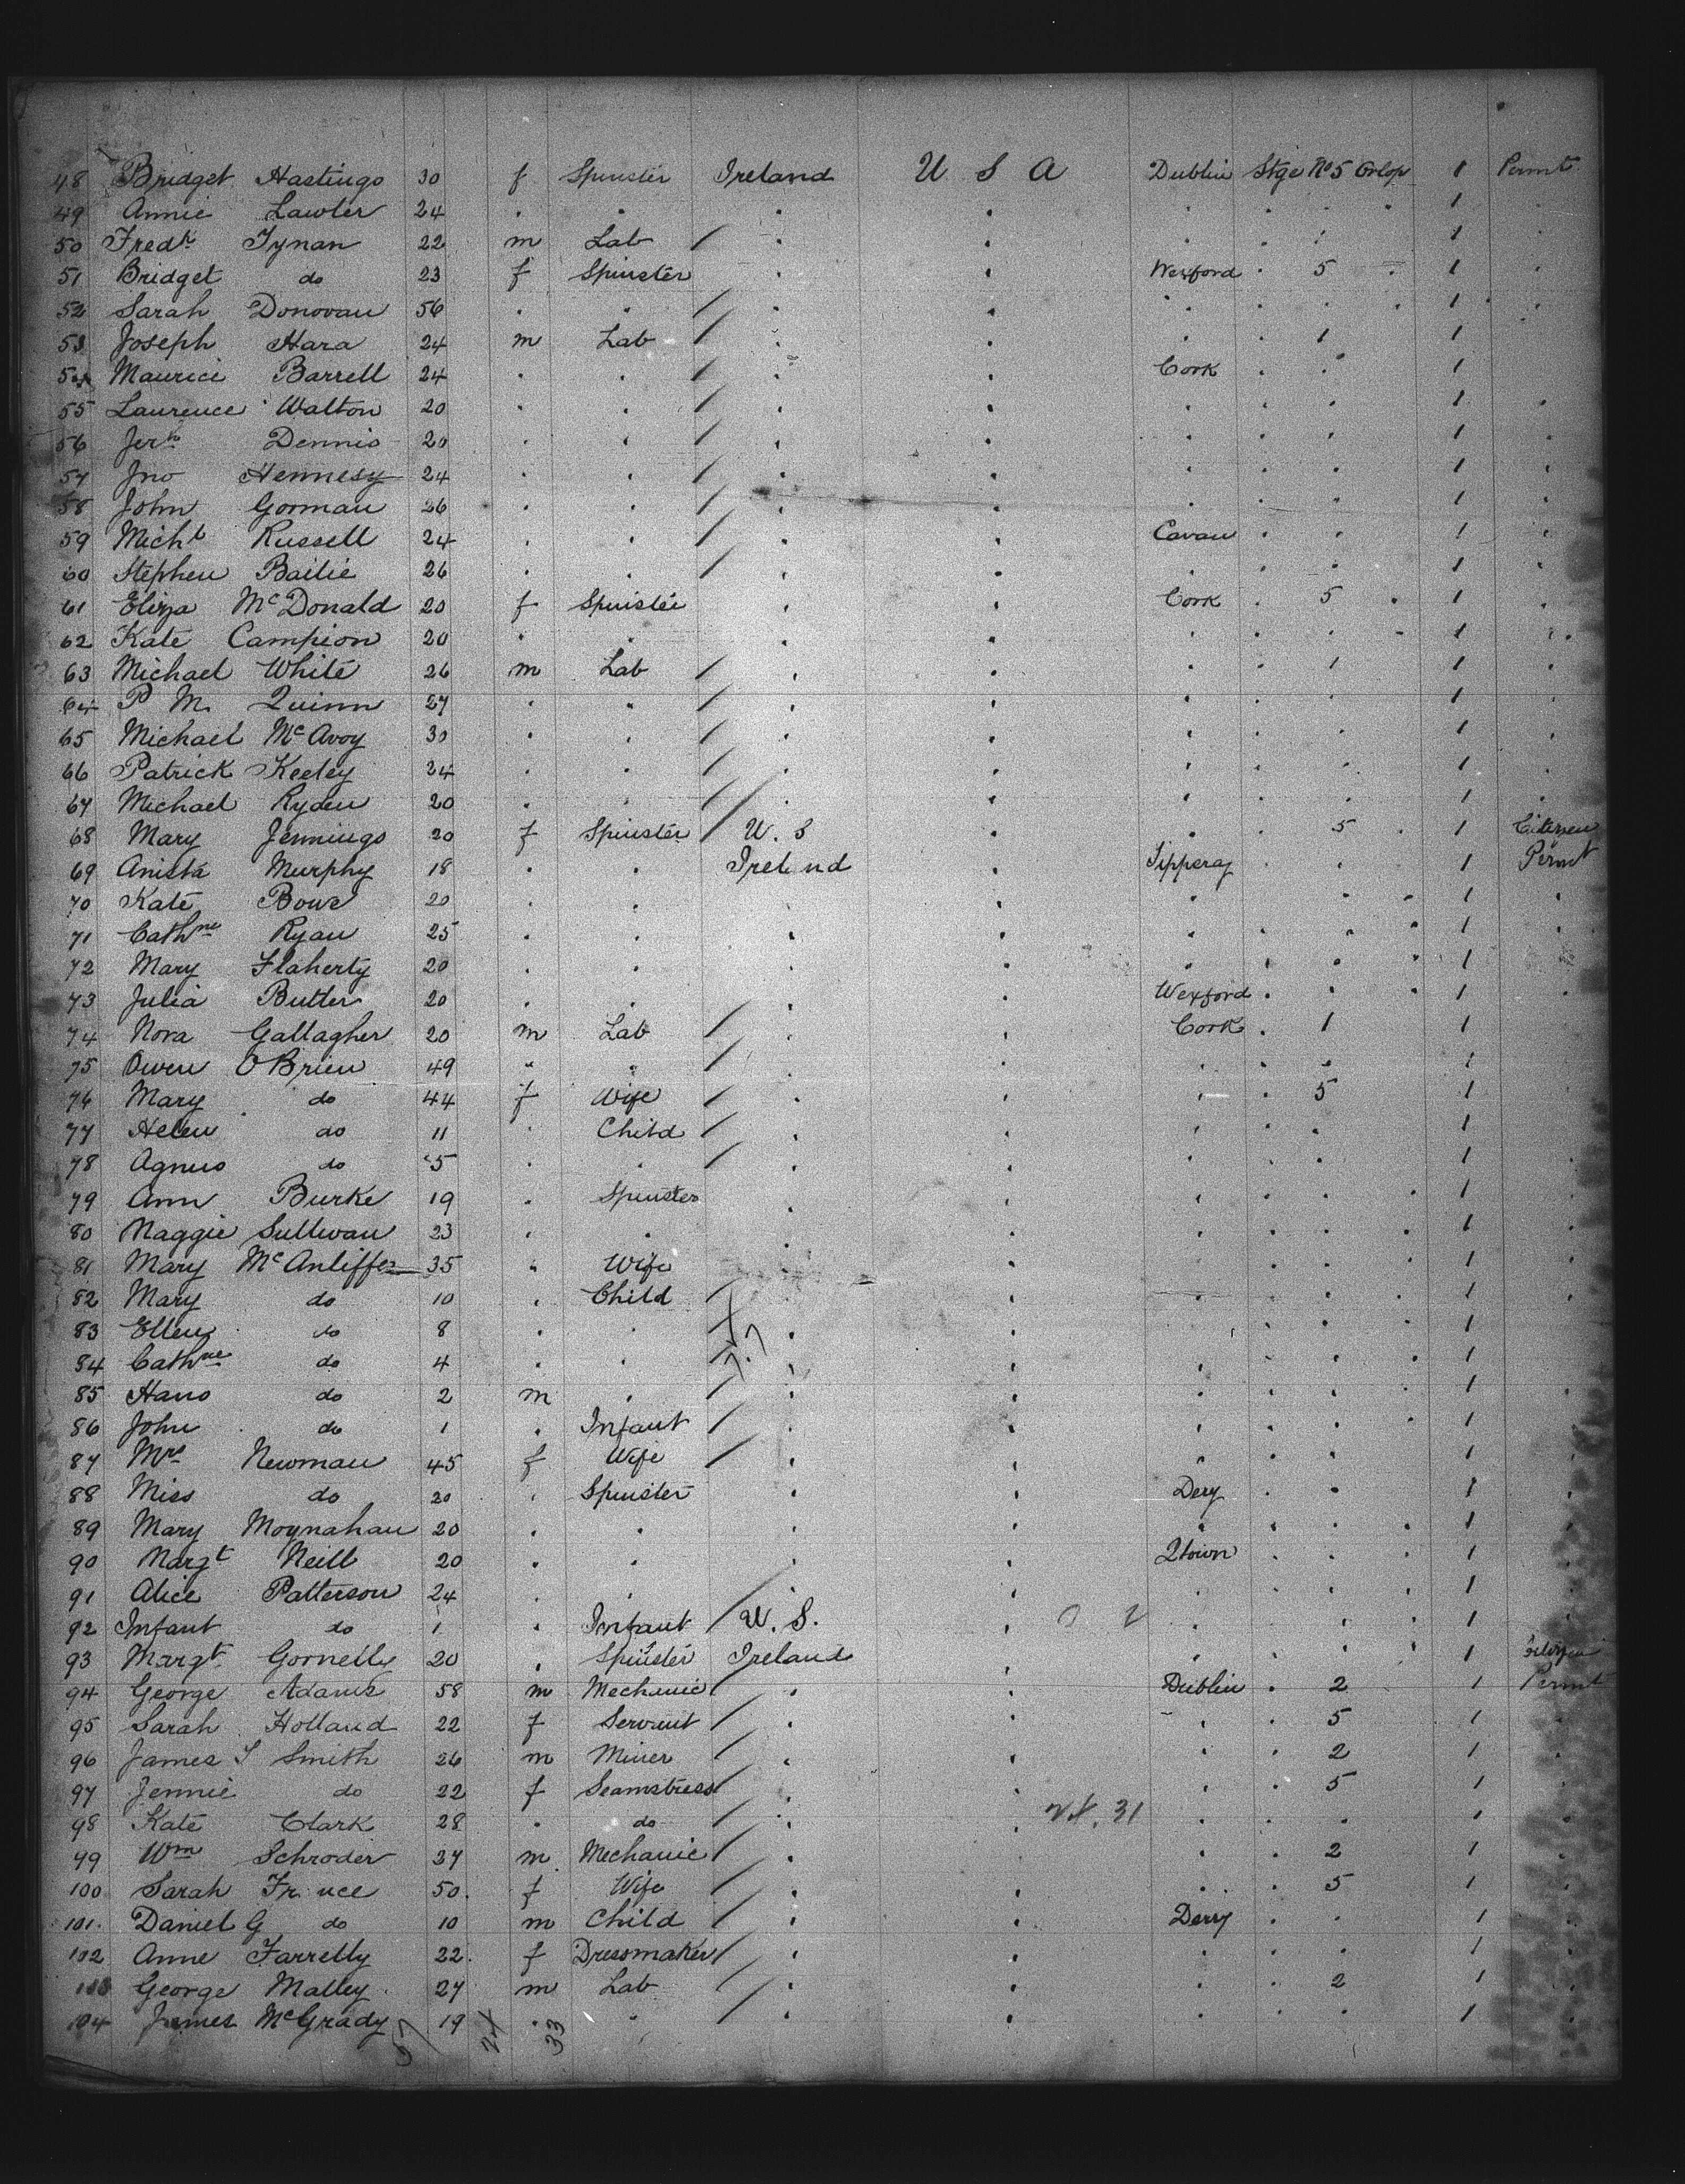 48 Bridget Hastings 30 f Spinster Ireland U S A Dublin Stge No 5 Orlop 1 Permt
49 Annie Lawler 24 " " " " " " " " 1
50 Fredk Tynan 22 m Lab / " " " " " 1 "
51 Bridget do 23 f Spinster " " Wexford " 5 " 1 "
52 Sarah Donovan 56 " " / " " " " " " 1 "
53 Joseph Hara 24 m Lab / " " " " 1 1
54 Maurice Barrell 24 " " / " " Cork " " 1
55 Laurence Walton 20 " " / " " " " " 1 "
56 Jerh Dennis 20 " " / " " " " " 1 "
57 Jno Hennesy 24 " " / " " " " " 1 "
58 John Gorman 26 " " / " " " " " 1 "
59 Michl Russell 24 " " / " " Cavan " " 1 "
60 Stephen Bailie 26 " " / " " " " " 1 "
61 Eliza McDonald 20 f Spinster " " Cork " 5 " 1 "
62 Kate Campion 20 " " " " " " " " 1 "
63 Michael White 26 m Lab / " " " " 1 1 "
64 P M. Quinn 27 " " / " " " " " 1 "
65 Michael McAvoy 30 " " / " " " " " 1 "
66 Patrick Keeley 24 " " / " " " " " 1 "
67 Michael Ryden 20 " " / " " " " " 1 "
68 Mary Jennings 20 f Spinster / U. S " " " 5 " 1 Citizen
69 Anista Murphy 18 " " Ireland " Tipperay " " 1 Permt
70 Kate Bowe 20 " " " " " " " " 1 "
71 Cathne Ryan 25 " " " " " " " " 1 "
72 Mary Flaherty 20 " " " " " " " " 1
73 Julia Butler 20 " " " " Wexford " " " 1
74 Nora Gallagher 20 m Lab / " " Cork " 1 1
75 Owen O'Brien 49 " " / " " " " " 1
76 Mary do 44 f Wife / " " " " 5 1
77 Helen do 11 " Child / " " " " " 1
78 Agnes do 5 " " / " " " " " 1
79 Ann Burke 19 " Spinster " " " " " " 1 "
80 Maggie Sullivan 23 " " " " " " " " 1 "
81 Mary McAnliffe 35 " Wife " " " " " " 1 "
82 Mary do 10 " Child / " " " " " " 1 "
83 Ellen do 8 " " / " " " " " " 1
84 Cathne do 4 " " / " " " " " " 1
85 Hano do 2 m " / " " " " " " 1 "
86 John do 1 " Infant / " " " " " " 1 "
87 Mrs Newman 45 f Wife / " " " " " 1 "
88 Miss do 20 " Spinster " " Dery " " 1 "
89 Mary Moynahan 20 " " " " " " " " 1 "
90 Margt Neill 20 " " " " Qtown " " " 1 "
91 Alice Patterson 24 " " / " " " " " " 1 "
92 Infant do 1 " Infant / U. S. " " " " " 1 "
93 Margt Gornelly 20 " Spinster Ireland " " " " 1 Citizen
94 George Adams 58 m Mechanic / " " Dublin " 2 1 Permt
95 Sarah Holland 22 f Servent / " " " " 5 1 "
96 James S Smith 26 m Miner / " " " " 2 1 "
97 Jennie do 22 f Seamstress / " " " " 5 1 "
98 Kate Clark 28 " do / " " " " " 1 "
99 Wm Schroder 37 m Mechanic / " " " " 2 1 "
100 Sarah Fr nce 50 f Wife / " " " " 5 1 "
101 Daniel G do 10 m Child / " " Derry " " 1 "
102 Anne Farrelly 22 f Dressmaker / " " " " " 1 "
103 George Malley 27 m Lab / " " " " 2 1 "
104 James McGrady 19 " " / " " " " " 1 "
57 24 33